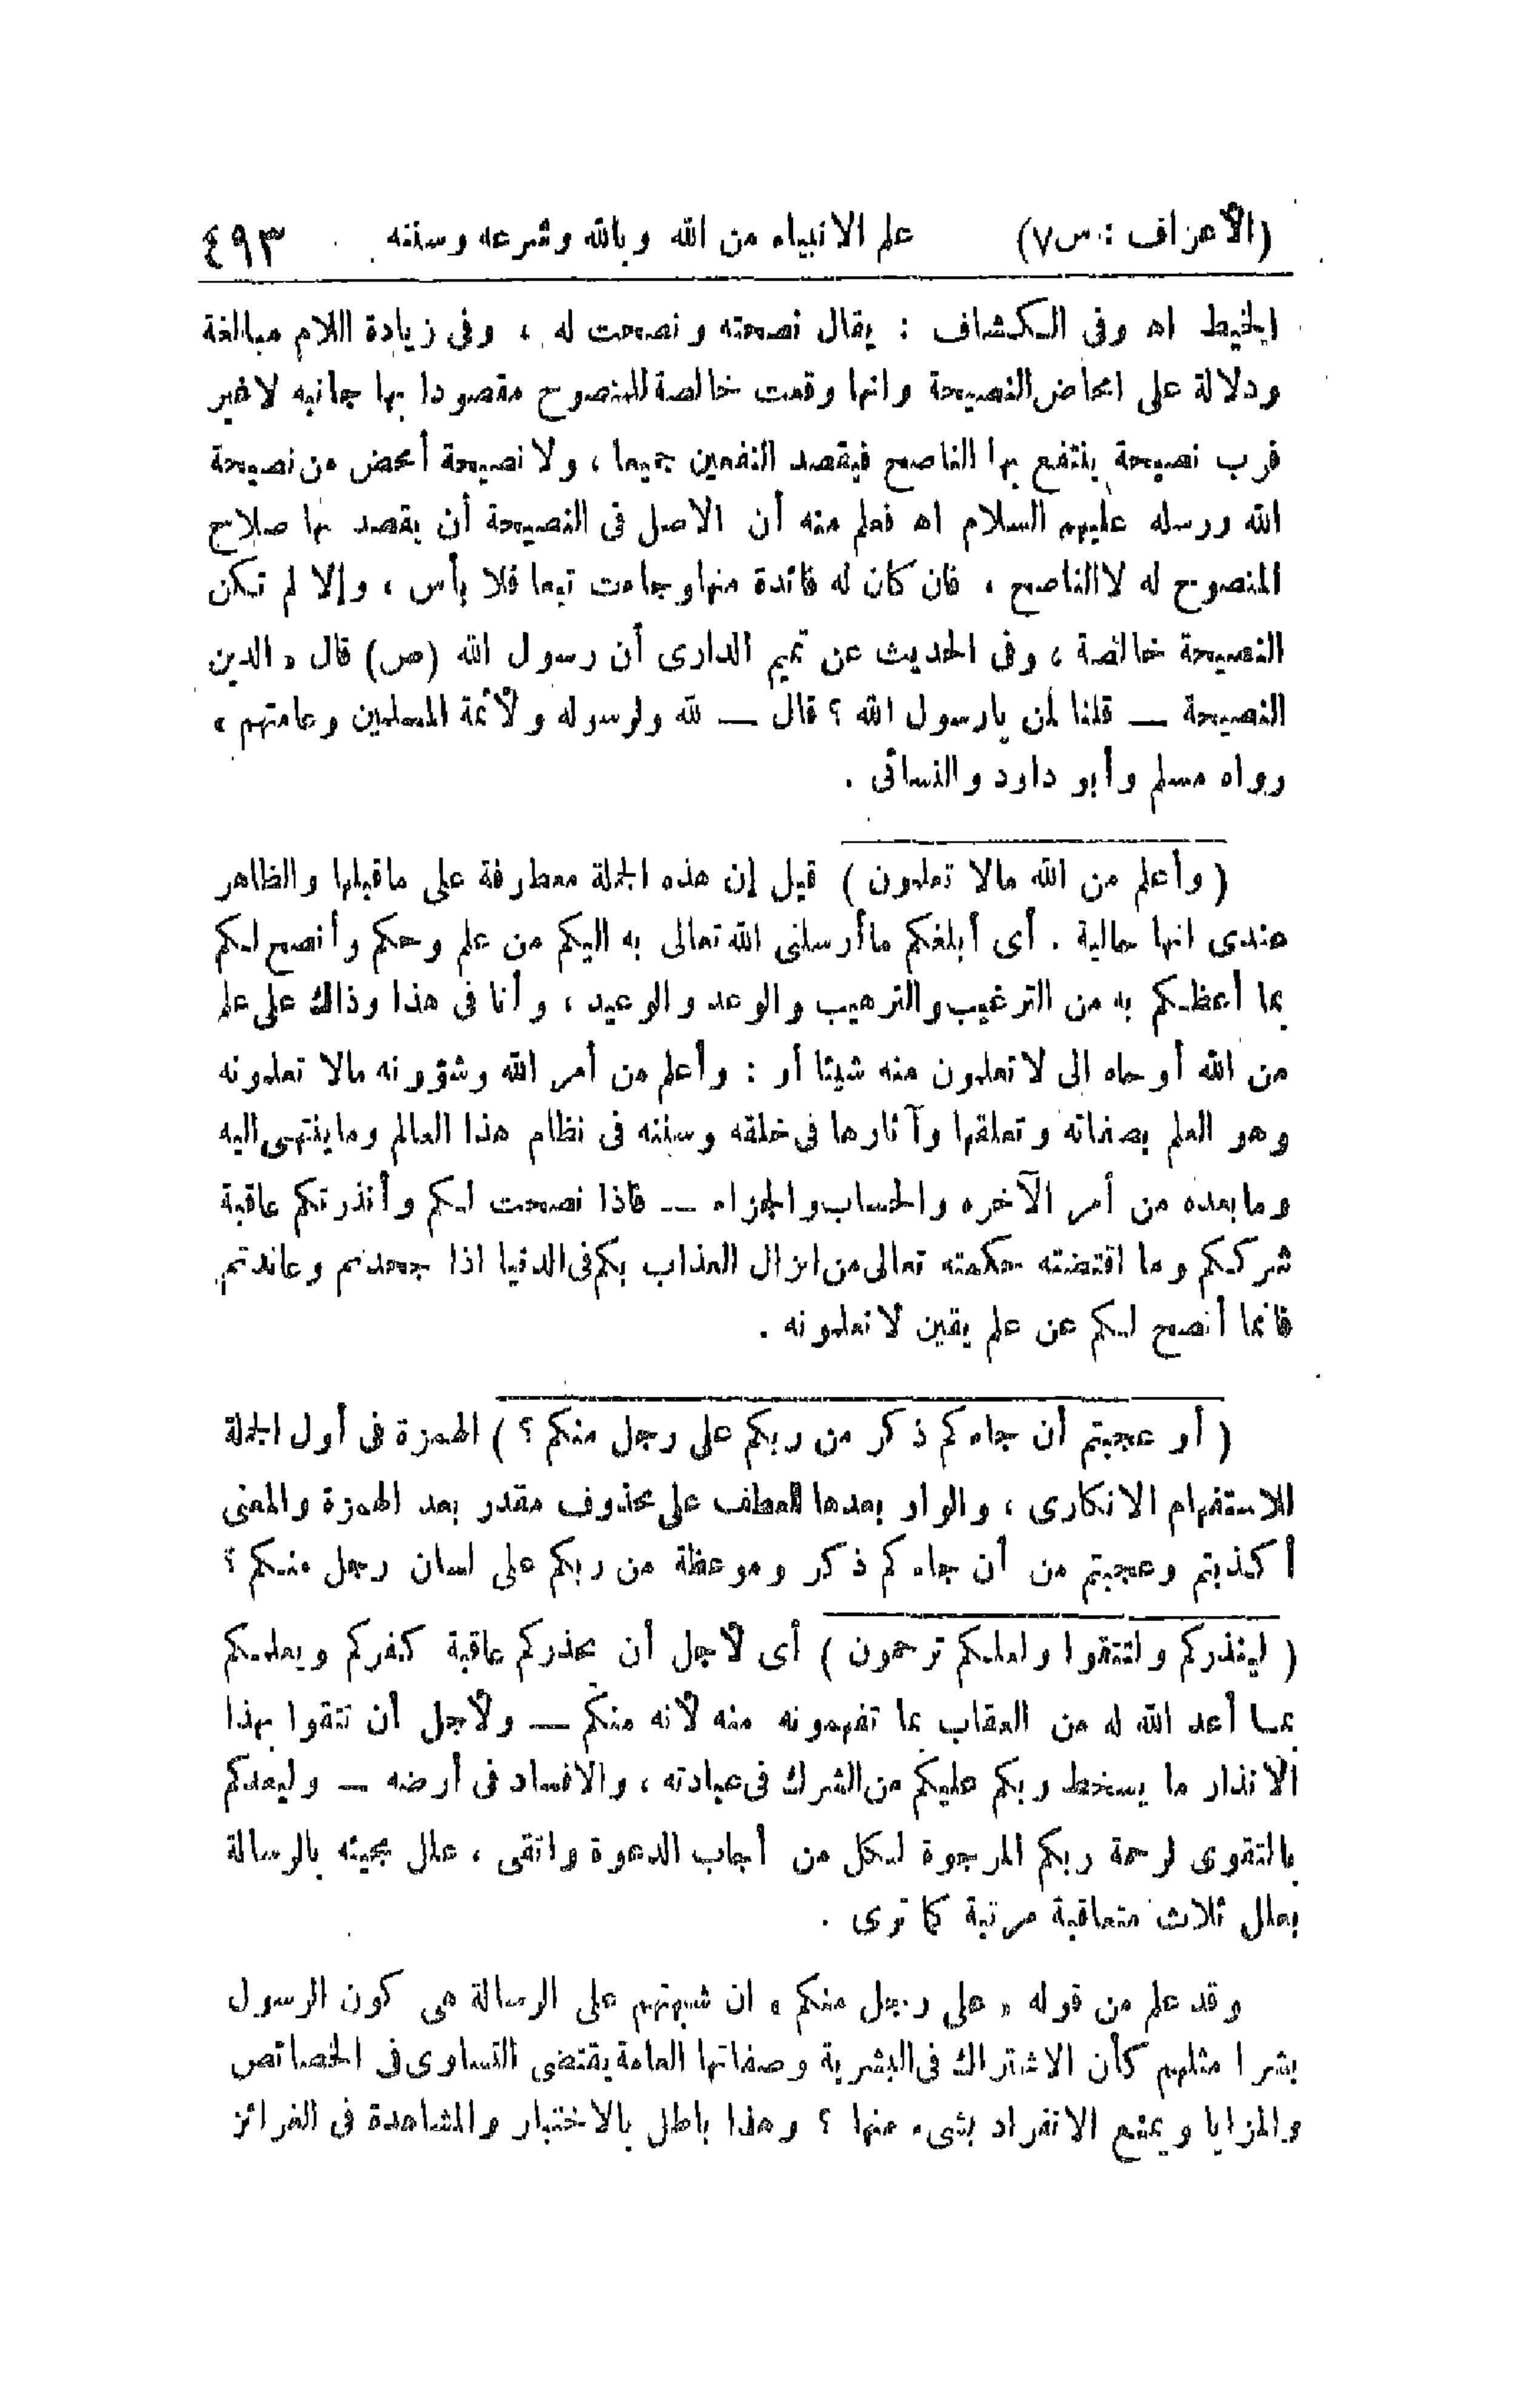 (الأعراف : س٧) علم الانبياء من الله وبالله وشرعه وسننه ٤٩٣
الخيط اه وفى الكشاف : يقال نصحته ونصحت له ، وفى زيادة اللام مبالغة
ودلالة على امحاض النصيحة وانها وقعت خالصة للمنصوح مقصودا بها جانبه لا غير
فرب نصيحة ينتفع بها الناصح فيقصد النفعين جميعا ، ولا نصيحة أمحض من نصيحة
الله ورسله عليهم السلام اه فعلم منه أن الاصل فى النصيحة أن يقصد بها صلاح
المنصوح له لا الناصح ، فان كان له فائدة منها وجاءت تبعا فلا بأس ، وإلا لم تكن
النصيحة خالصة ، وفى الحديث عن تميم الدارى أن رسول الله (ص) قال « الدين
النصيحة — قلنا لمن يارسول الله ؟ قال — لله ولرسوله ولأئمة المسلمين وعامتهم »
رواه مسلم وأبو داود والنسائى .
( وأعلم من الله مالا تعلمون ) قيل إن هذه الجملة معطوفة على ماقبلها والظاهر
عندى انها حالية . أى أبلغكم ماأرسلنى الله تعالى به اليكم من علم وحكم وأنصح لكم
بما أعظكم به من الترغيب والترهيب والوعد والوعيد ، وأنا فى هذا وذاك على علم
من الله أوحاه الى لا تعلمون منه شيئا أو : وأعلم من أمر الله وشؤونه مالا تعلمونه
وهو العلم بصفاته وتعلقها وآثارها فى خلقه وسننه فى نظام هذا العالم وما ينتهى اليه
وما بعده من أمر الآخره والحساب والجزاء — فاذا نصحت لكم وأنذرتكم عاقبة
شرككم وما اقتضته حكمته تعالى من انزال العذاب بكم فى الدنيا اذا جحدتم وعاندتم
فانما أنصح لكم عن علم يقين لا تعلمونه .
( أو عجبتم أن جاءكم ذكر من ربكم على رجل منكم ؟ ) الهمزة فى أول الجملة
للاستفهام الانكارى ، والواو بعدها للعطف على محذوف مقدر بعد الهمزة والمعنى
أكذبتم وعجبتم من أن جاءكم ذكر وموعظة من ربكم على لسان رجل منكم ؟
( لينذركم ولتتقوا ولعلكم ترحمون ) أى لأجل أن يحذركم عاقبة كفركم ويعلمكم
بما أعد الله له من العقاب بما تفهمونه منه لأنه منكم — ولأجل أن تتقوا بهذا
الانذار ما يسخط ربكم عليكم من الشرك فى عبادته ، والافساد فى أرضه — وليعدكم
بالتقوى لرحمة ربكم المرجوة لكل من أجاب الدعوة واتقى ، علل مجيئه بالرسالة
بعلل ثلاث متعاقبة مرتبة كما ترى .
وقد علم من قوله « على رجل منكم » ان شبهتهم على الرسالة هى كون الرسول
بشرا مثلهم كأن الاشتراك فى البشرية وصفاتها العامة يقتضى التساوى فى الخصائص
والمزايا ويمنع الانفراد بشىء منها ؟ وهذا باطل بالاختبار والمشاهدة فى الغرائز